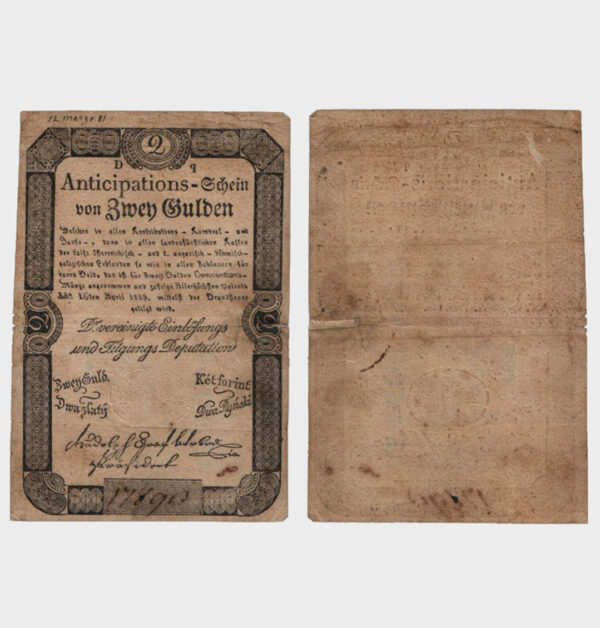 12 Marzo 81
2
D q
Anticipations-Schein
von Zwey Gulden
Welchre in allen Kontributions-, Kameral- und
Banko-, dann in allen landesfürstlichen Kassen
der kais. österreichisch- und k. ungarisch- böhmisch-
galizischen Erblanden so wie in allen Zahlungen für
bares Geld, das ist für Zwey Gulden Conventions-
Münze angenommen und zufolge Allerhöchsten Patents
ddo. 16ten April 1813. mittelst der Grundsteuer
getilgt wird.
2 2
Die vereinigte Einlösungs
und Tilgungs Deputation
Zwey Guld. Két forint
Dwa zlatý Dwa Ryński
Rudolph Graf
Präsident